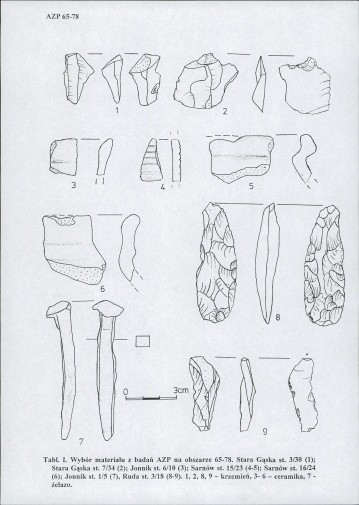 AZP 65-78
1
2
3
4
5
6
7
8
9
0 3cm
Tabl. I. Wybór materiału z badań AZP na obszarze 65-78. Stara Gąska st. 3/30 (1);
Stara Gąska st. 7/34 (2); Jonnik st. 6/10 (3); Sarnów st. 15/23 (4-5); Sarnów st. 16/24
(6); Jonnik st. 1/5 (7), Ruda st. 3/18 (8-9). 1, 2, 8, 9 – krzemień, 3- 6 – ceramika, 7 -
żelazo.